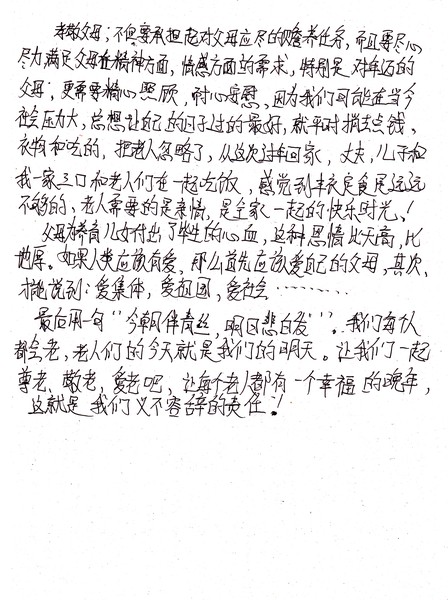 孝敬父母；不但要承担起对父母应尽的赡养任务，而且要尽心
尽力满足父母在精神方面，情感方面的需求，特别是对年迈的
父母，更需要精心照顾，耐心安慰，因为我们可能在当今
社会压力大，总想让自己的日子过的最好，就平时捎去点钱，
衣物和吃的，把老人忽略了，从这次过年回家，丈夫，儿子和
我一家三口和老人们在一起吃饭，感觉到丰衣足食是远远
不够的，老人需要的是亲情，是全家一起的快乐时光！
父母为养育儿女付出了毕生的心血，这种恩情比天高，比
地厚。如果人类应该有爱，那么首先应该爱自己的父母，其次
才能说到：爱集体，爱祖国，爱社会………
最后用一句“今朝伴青丝，明日悲白发”。我们每人
都会老，老人们的今天就是我们的明天。让我们一起
尊老、敬老、爱老吧，让每个老人都有一个幸福的晚年，
这就是我们义不容辞的责任！